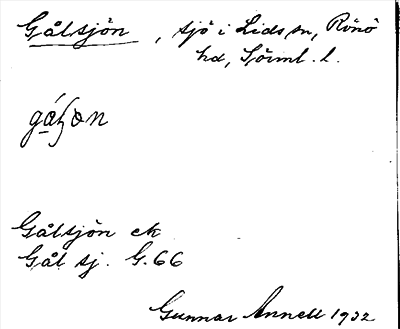 Gålsjön, sjö i Lids sn, Rönö
hd, Sörml. l.
Gålsjön ek
Gål sj. G. 66
Gunnar Annell 1932